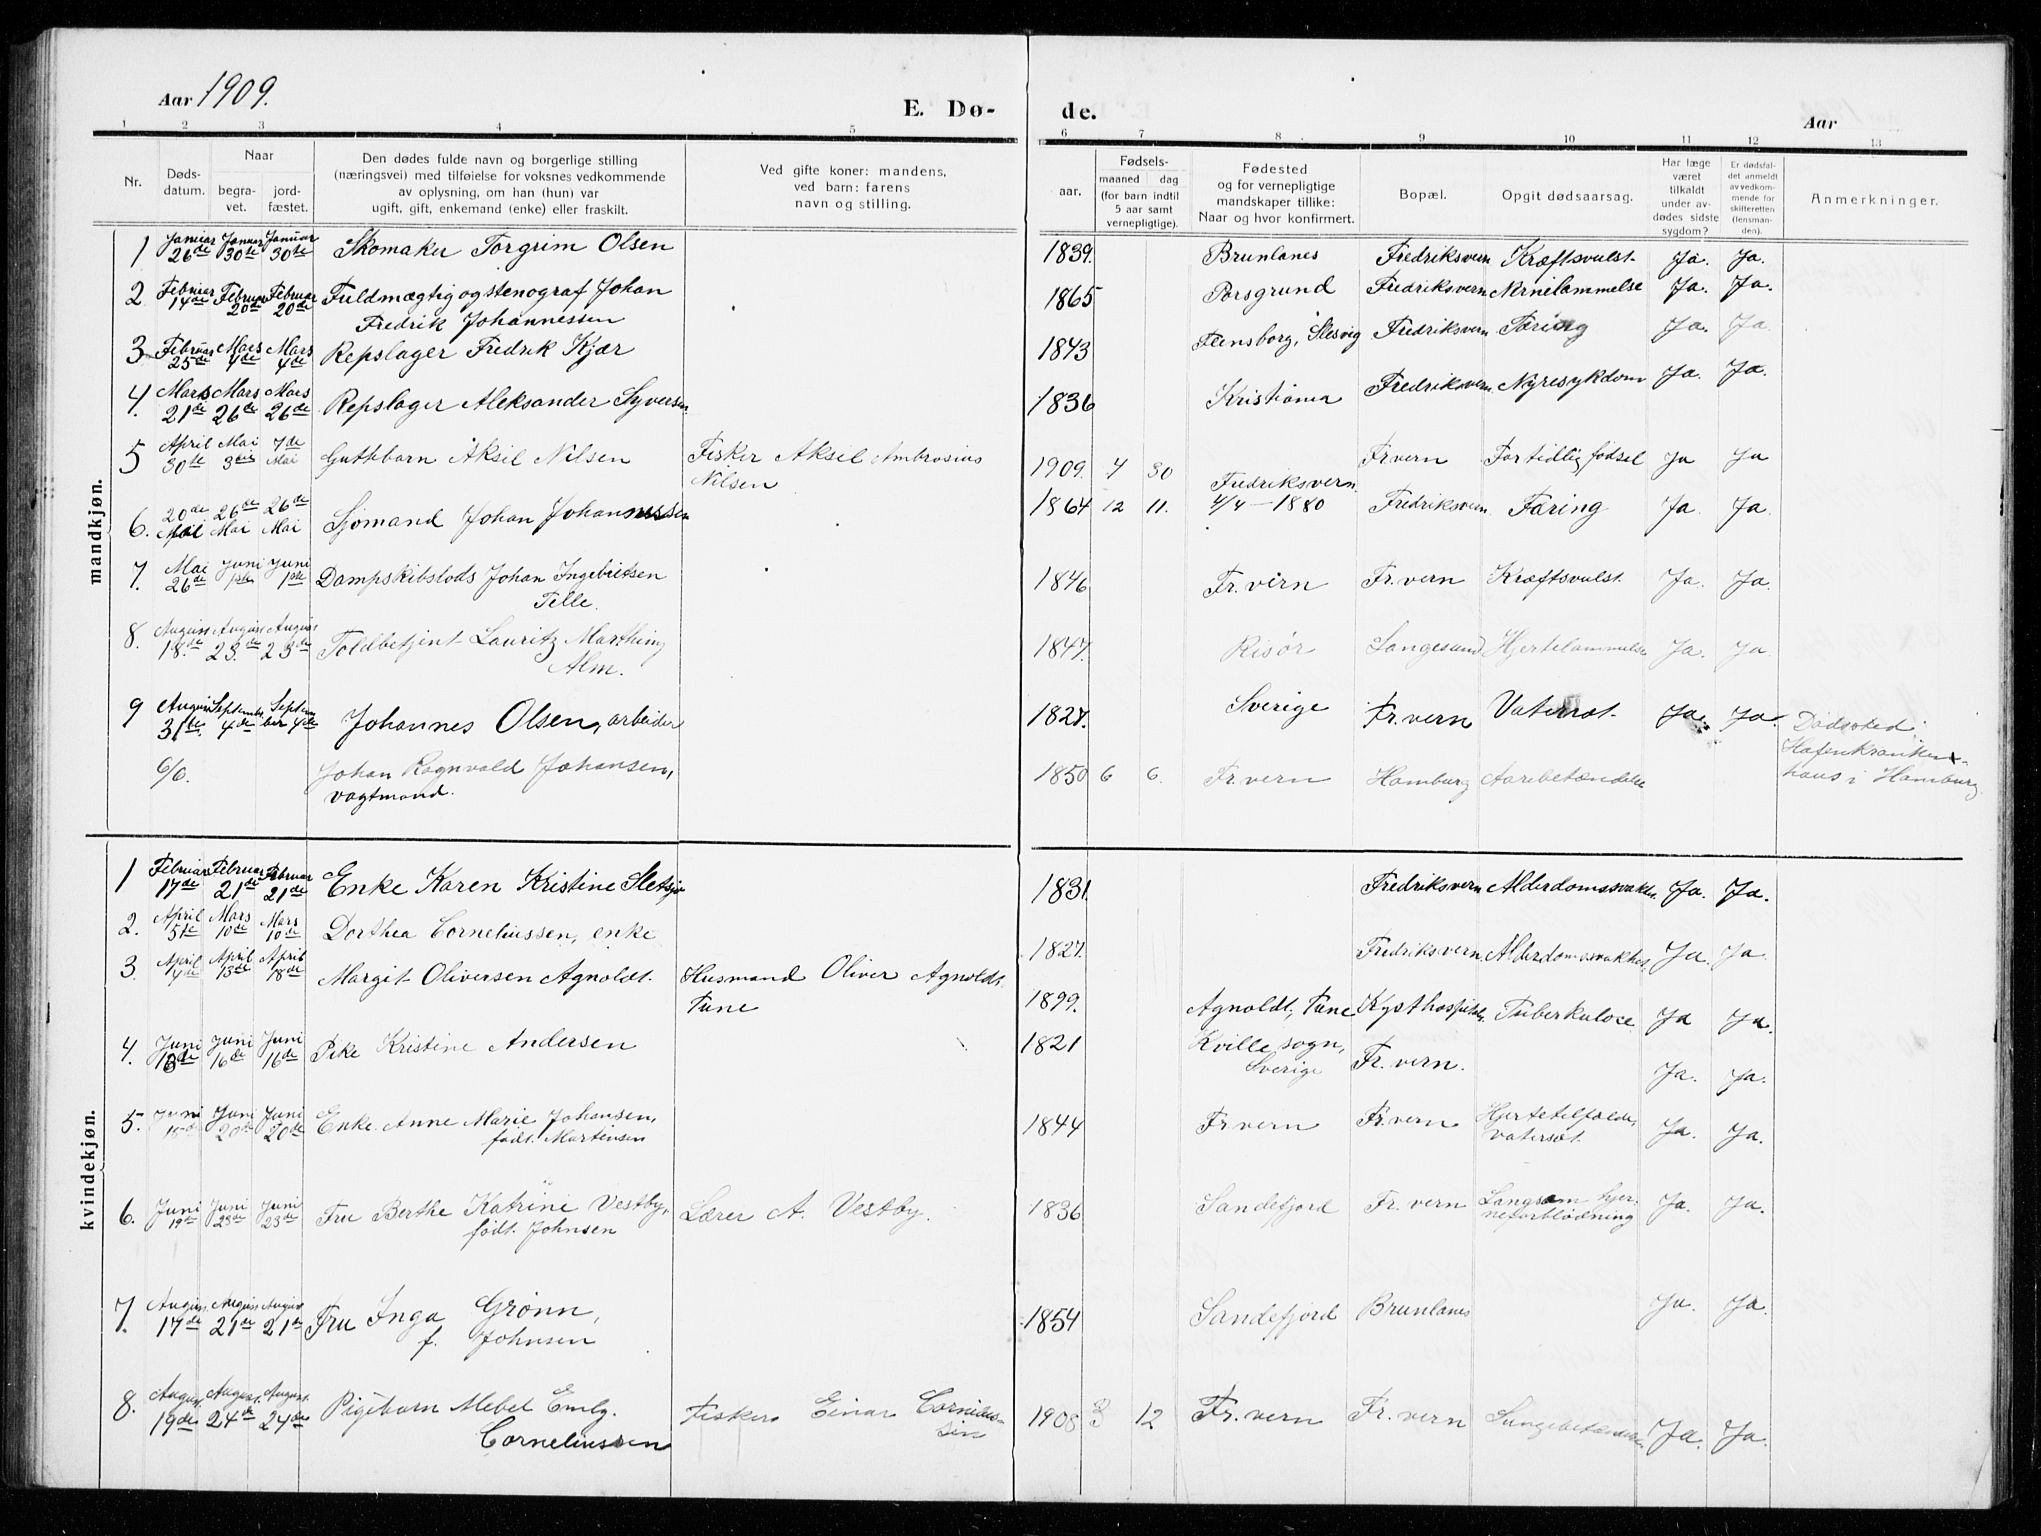 Aar 1909.
E. Dø- de.
Aar
1 2 3 4 5 6 7 8 9 10 11 12 13
Nr.
Døds-
datum.
Naar
begra-
vet.
jord-
fæstet.
Den dødes fulde navn og borgerlige stilling
(næringsvei) med tilføielse for voksnes vedkommende
av oplysning, om han (hun) var
ugift, gift, enkemand (enke) eller fraskilt.
Ved gifte koner: mandens,
ved barn: farens
navn og stilling.
aar.
Fødsels-
maaned dag
(for barn indtil
5 aar samt
vernepligtige).
Fødested
og for vernepligtige
mandskaper tillike:
Naar og hvor konfirmert.
Bopæl.
Opgit dødsaarsag.
Har læge
været
tilkaldt
under av-
dødes sidste
sygdom?
Er dødsfal-
det anmeldt
av vedkom-
mende for
skifteretten
(lensman-
den).
Anmerkninger.
mandkjøn.
1 Januar 26de Januar 30te Januar 30te Skomaker Torgrim Olsen 1839. Brunlanes Fredriksvern Kræftsvulst. Ja. Ja.
2 Februar 14de Februar 20de Februar 20de Fuldmægtig og stenograf Johan 1865 Porsgrund Fredriksvern Nyrnelammelse Ja. Ja.
Fredrik Johannessen
3 Februar 25de Mars 4de Mars 4de Repslager Fredrik Kjær 1843 Flensborg, Slesvig Fredriksvern Tæring Ja. Ja
4. Mars 21de Mars 26de Mars 26de Repslager Aleksander Syversen 1836 Kristiania Fredriksvern Nyresykdom Ja. Ja.
5 April 30te Mai 3die 7de Mai Guttbarn Aksil Nilsen Fisker Aksil Ambrosius 1909. 4 30 Fr.vern For tidlig fødsel Ja Ja
Nilsen Fredriksvern.
6. 20de Mai 26de Mai 26de Mai Sjømand Johan Johannessen 1864 12 11. 4/4 - 1880 Fredriksvern Tæring Ja. Ja.
7. Mai 26de Juni 1ste Juni 1ste Dampskibslods Johan Ingebritsen 1846 Fr. vern Fr. vern Kræftsvulst. Ja. Ja.
Telle.
8. August 18de August 23de August 23de Toldbetjent Lauritz Marthing 1847. Risør Langesund Hjertelammelse Ja. Ja.
Alm.
9 August 31te. September 4de September 4de Johannes Olsen, arbeider 1827. Sverige Fr.vern Vatersot. Ja. Ja.
6/6. Johan Ragnvald Johansen, 1850 6 6. Fr. vern Hamburg Aarebetændelse Dødssted:
vagtmand. Hafenkranken-
haus i Hamburg.
kvindekjøn.
1 Februar 17de Februar 21de Februar 21de Enke Karen Kristine Sletsjø 1831. Fredriksvern Alderdomssvakhet. Ja. Ja.
2. April 5te Mars 10de Mars 10de Dorthea Corneliussen, enke 1827. Fredriksvern Alderdomssvakhet. Ja. Ja.
3. April 4de April 13de April 18de Margit Oliversen Agnoldt. Husmand Oliver Agnoldt. 1899. Agnoldt, Tune Kysthospitalet Tuberkulose Ja Ja.
Tune
4. Juni 13de Juni 16de Juni 16de Pike Kristine Andersen 1821 Kville sogn, Fr. vern. Ja. Ja.
Sverige
5. Juni 15de Juni 20de Juni 20de Enke Anne Marie Johansen, 1844 Fr vern Fr. vern Hjertetilfælde, Ja. Ja.
født. Martinsen vatersot.
6. Juni 19de Juni 23de Juni 23de Fru Berthe Katrine Vestby, Lærer A. Vestby. 1836 Sandefjord Fr. vern Langsom hjer- Ja. Ja.
født. Johnsen neforblødning
7. August 17de August 21de August 21de Fru Inga Grønn, 1854 Sandefjord Brunlanes Ja. Ja.
f. Johnsen
8. August 19de August 24de August 24de Pigebarn Mebel Emly. Fisker Einar Cornelius- 1908 3 12 Fr. vern Fr. vern Lungebetændelse Ja. Ja.
Corneliussen sen